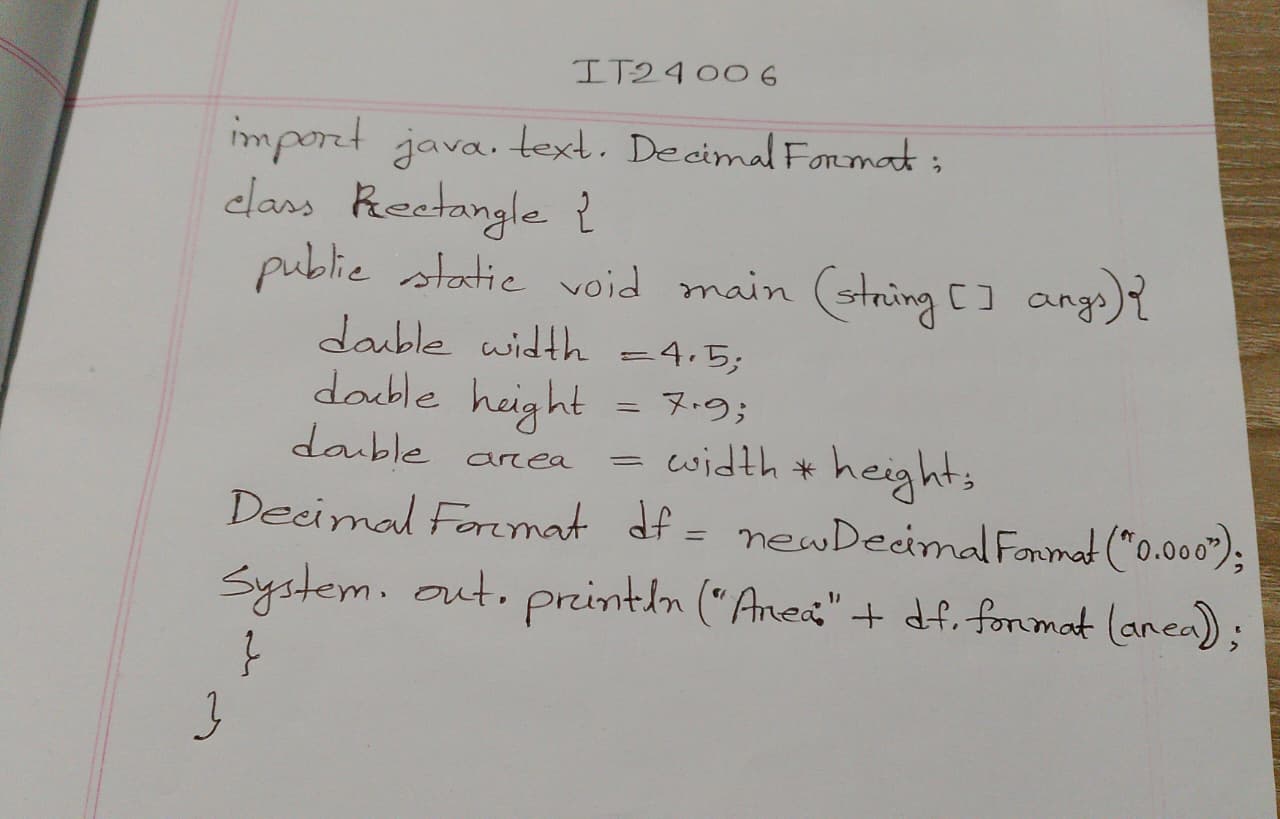 IT24006
import java.text.DecimalFormat;
class Rectangle {
public static void main (string [] args){
double width =4.5;
double height = 7.9;
double area = width * height;
DecimalFormat df = newDecimalFormat("0.000");
System.out.println("Area:" + df.format(area));
}
}